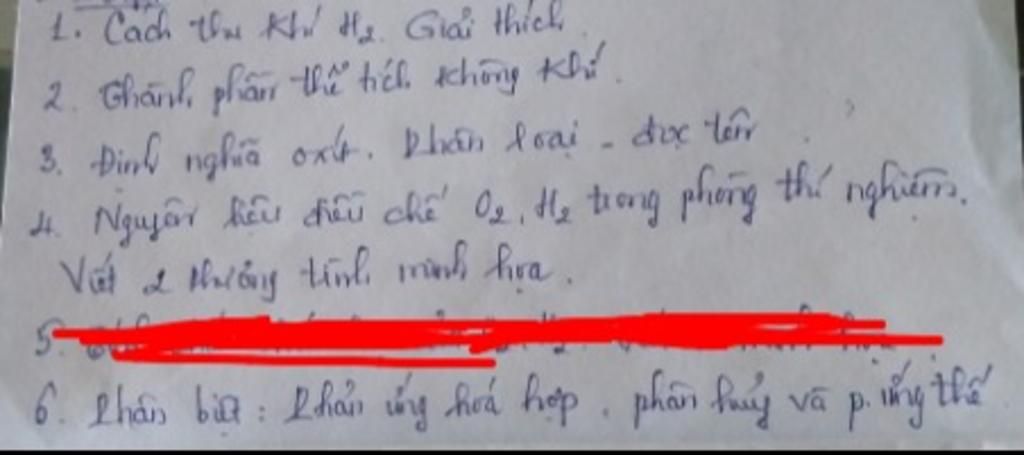 1. Cách thu khí H₂. Giải thích.
2. Thành phần thể tích không khí.
3. Định nghĩa oxit. Phân loại - đọc tên.
4. Nguyên liệu điều chế O₂, H₂ trong phòng thí nghiệm.
Viết 2 phương trình minh họa.
5.
6. Phân biệt: Phản ứng hoá hợp, phân hủy và p. ứng thế